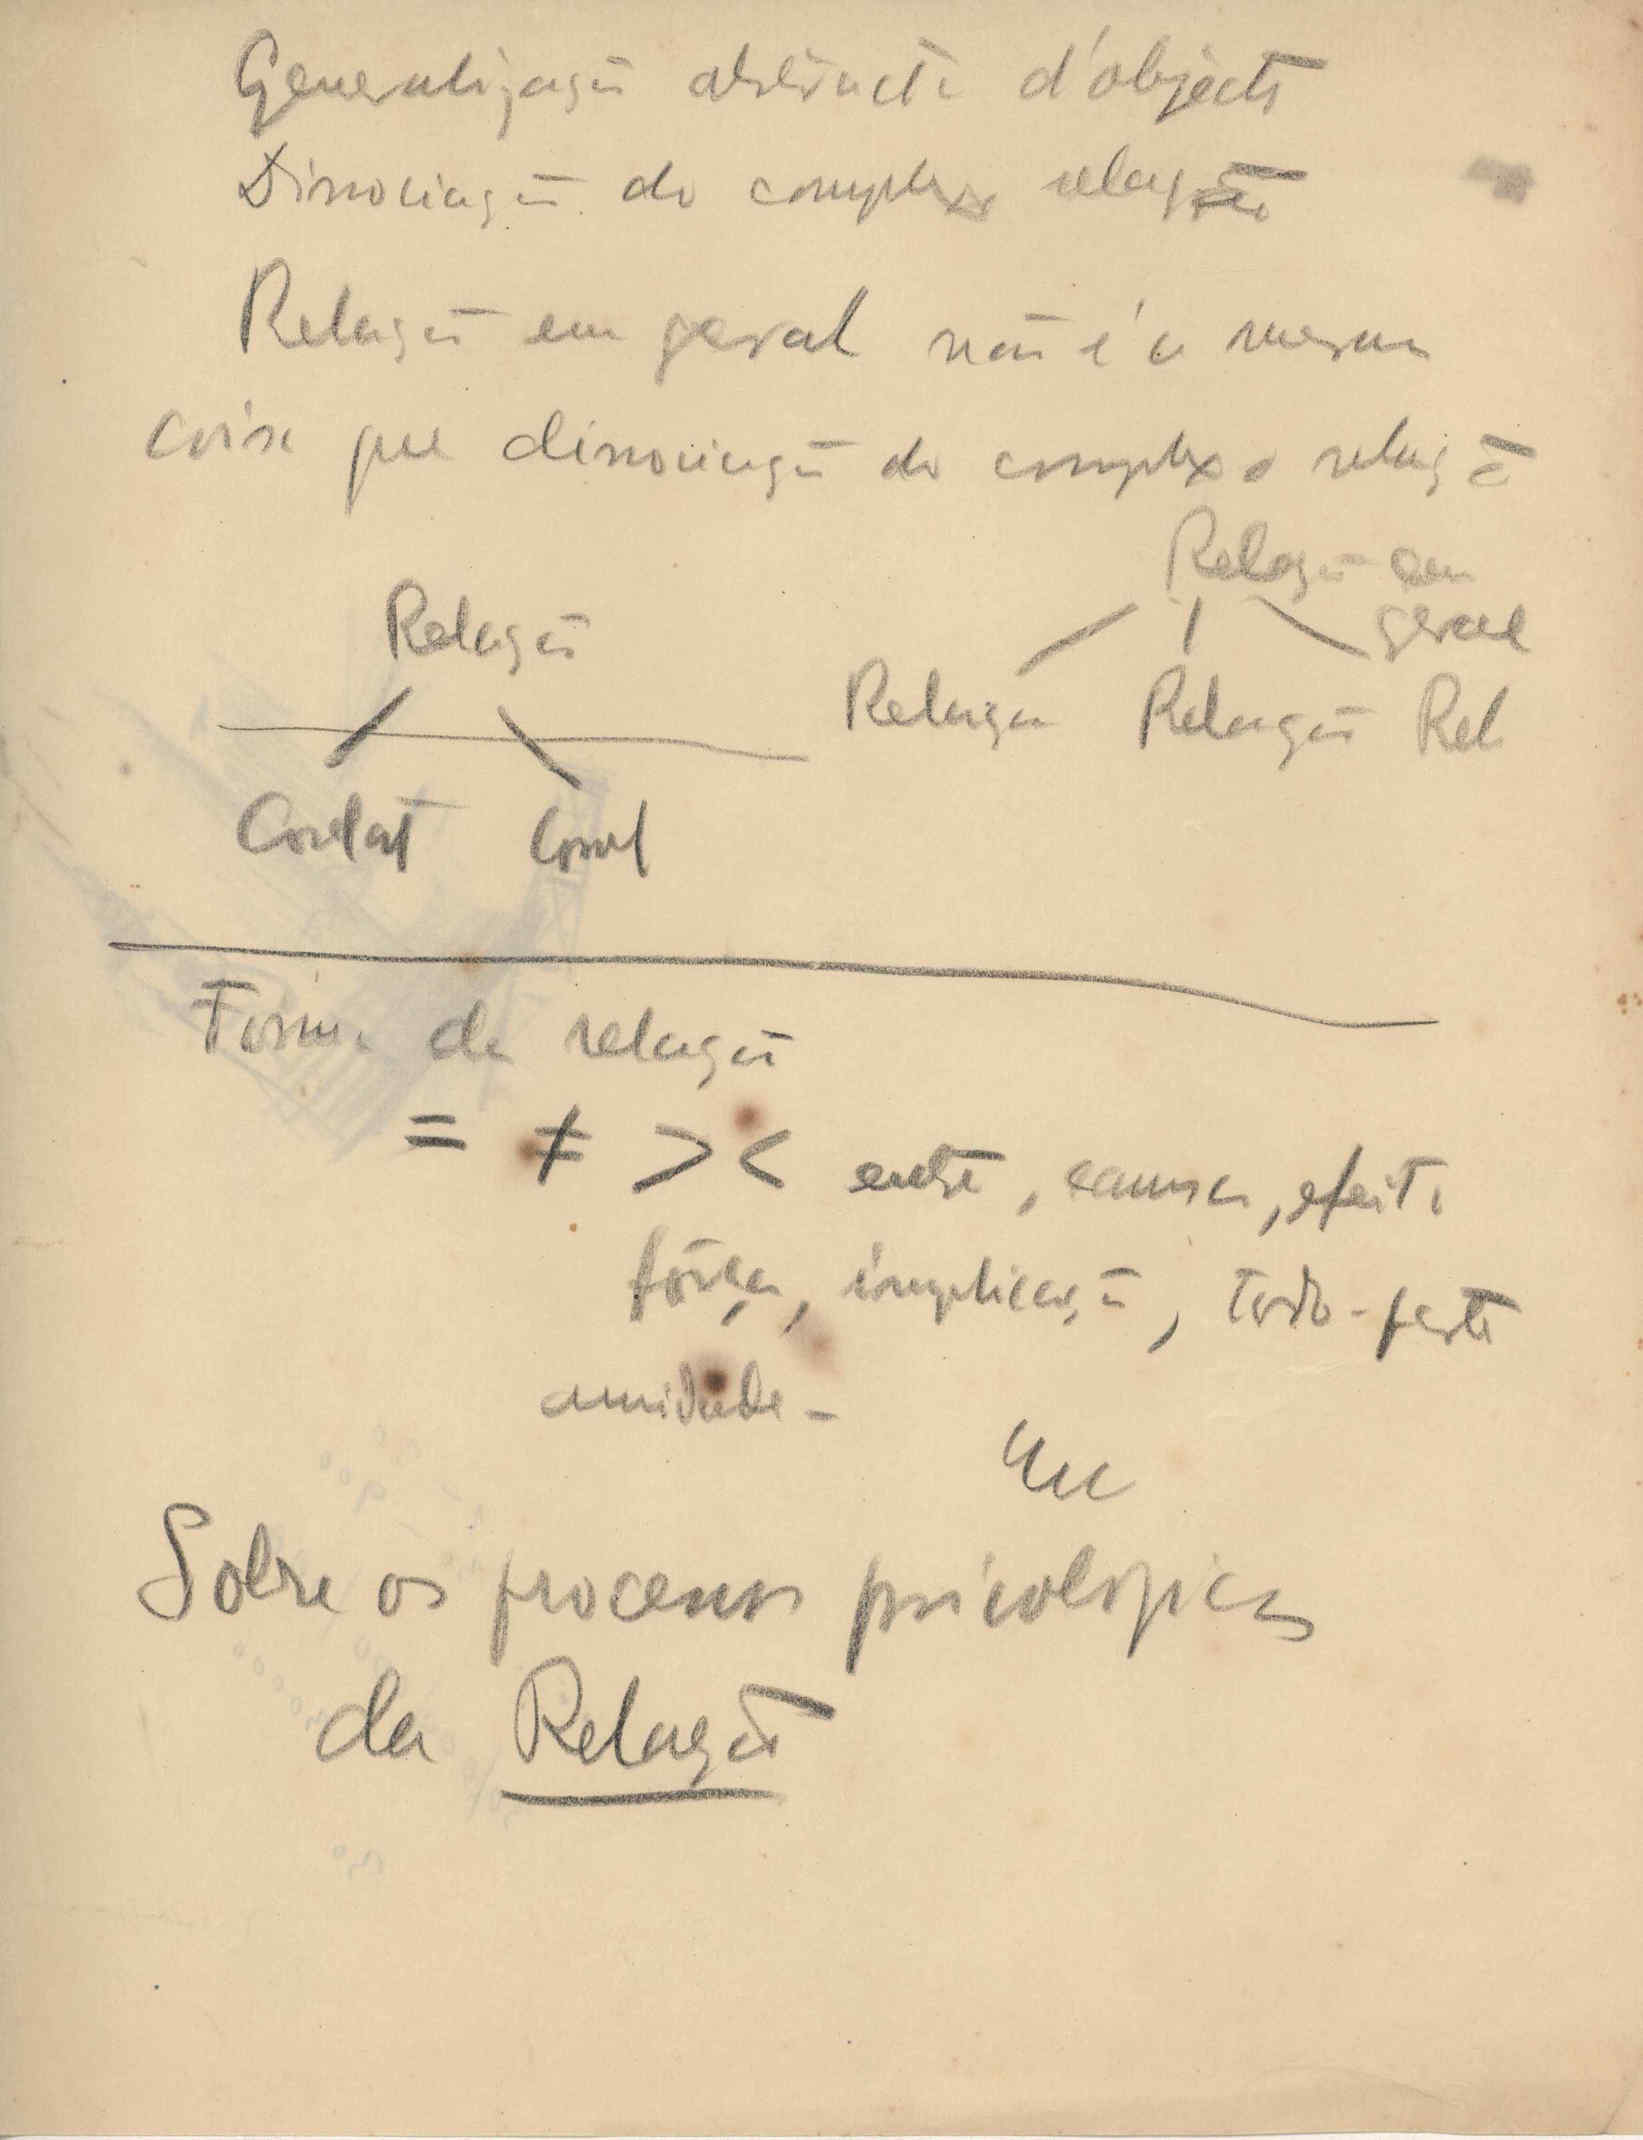 Generalização abstracta d'objecto
Dissociação do complexo relação
Relação em geral não é a mesma
coisa que dissociação do complexo relação
Relação em
geral
Relação
Relação Relação Rel
Correlat Correl
Forma da relação
= ≠ > < entre, causa, efeito
fôrça, implicação, todo-parte
Eu
Sobre os processos psicologicos
da Relação